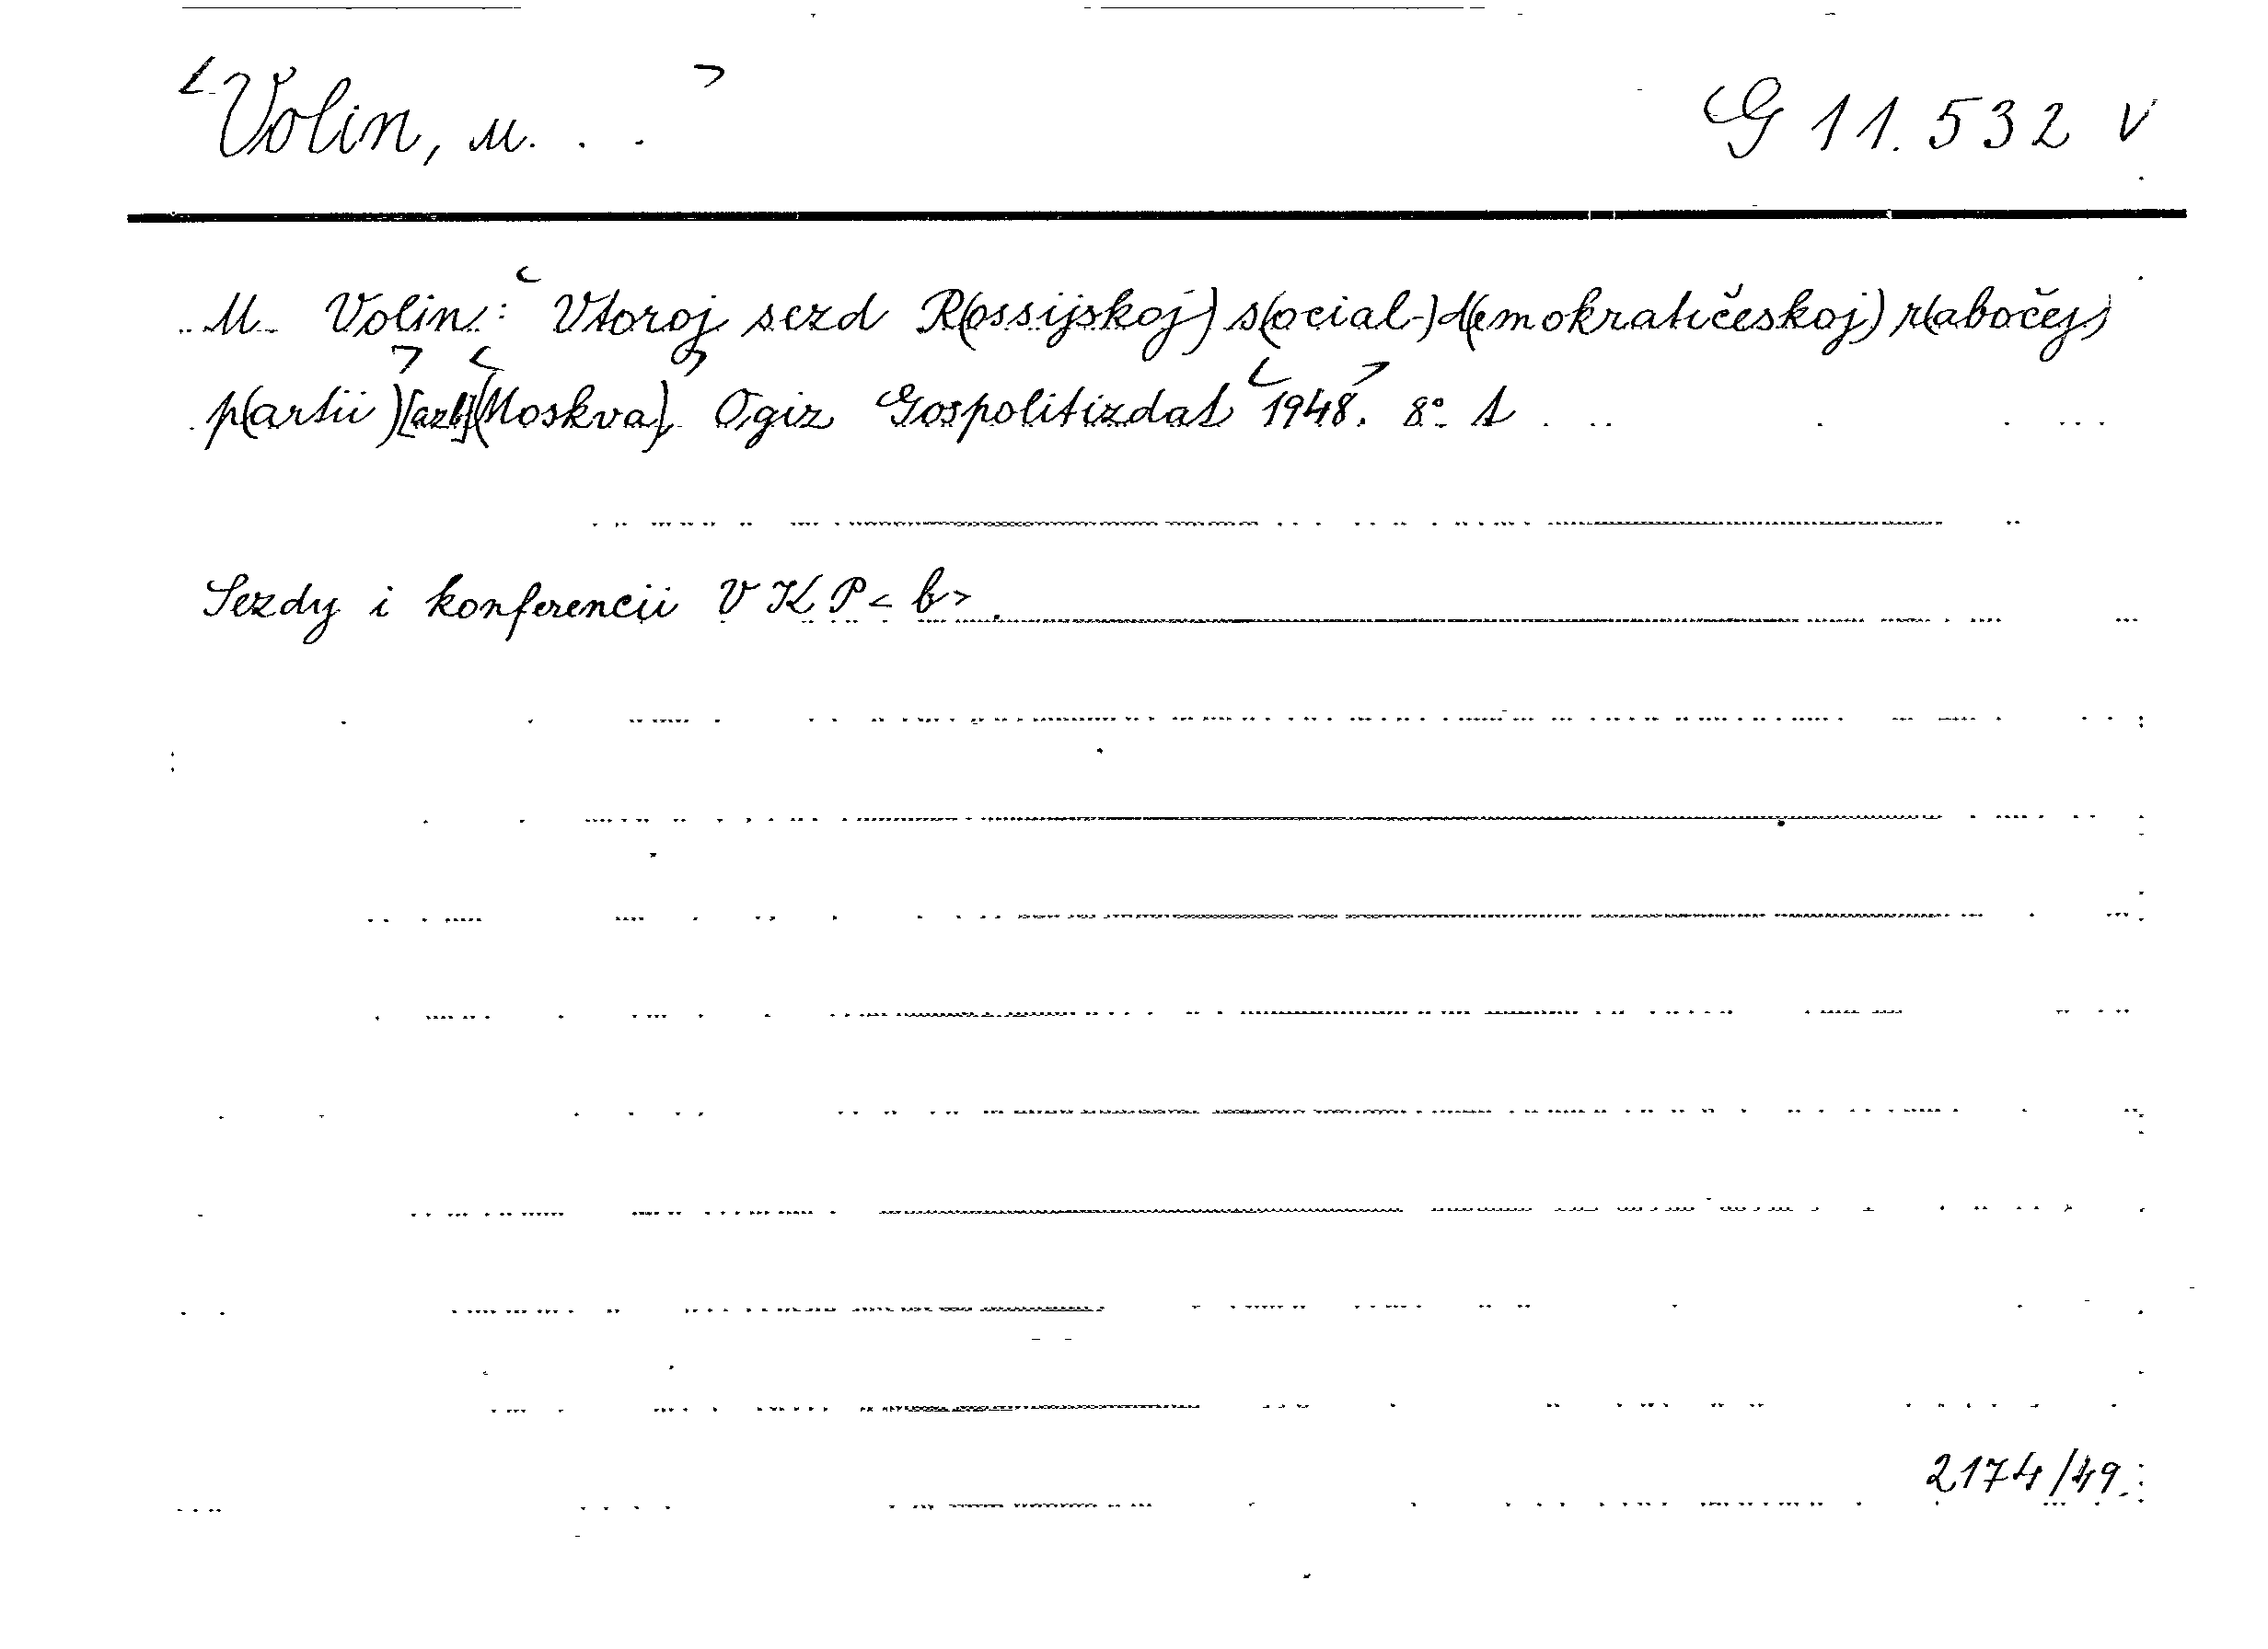 Volin, M.
G 11.532 V
M. Volin: Vtoroj sezd R(ossijskoj) s(ocial-)d(emokratičeskoj) r(abočej)
p(artii) [azb] (Moskva). Ogiz Gospolitizdat 1948. 8°. 1
Sezdy i konferencii VKP<b>.
2174/49.